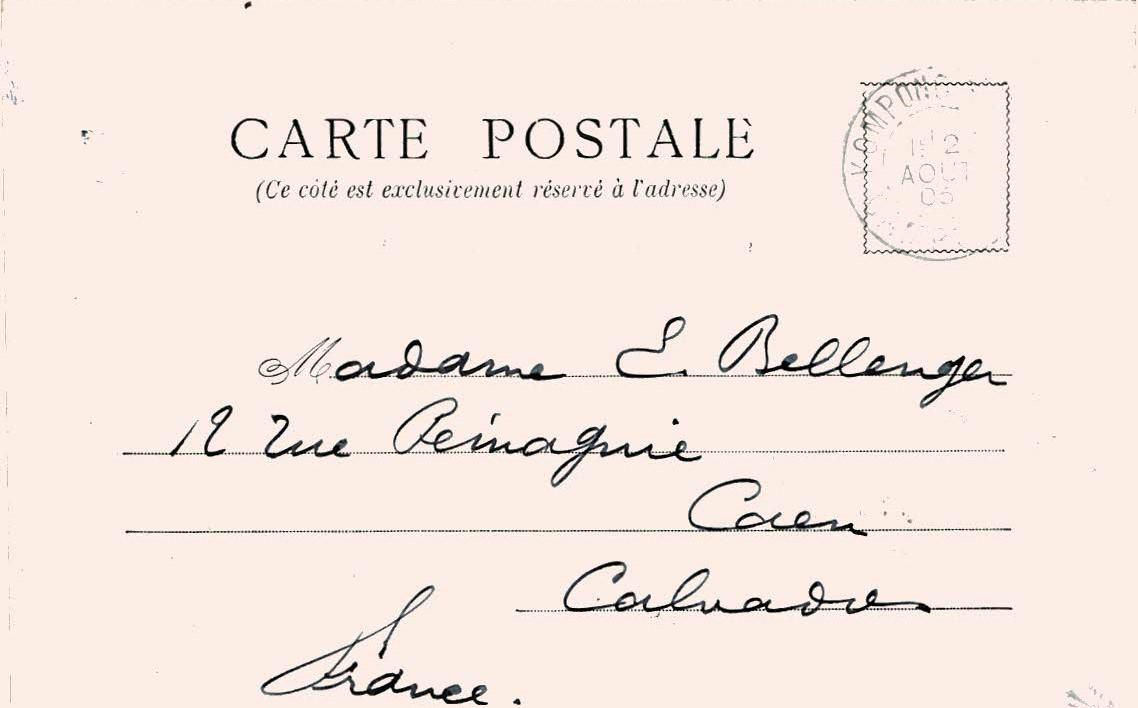 CARTE POSTALE
(Ce côté est exclusivement réservé à l'adresse)
KOMPONG
12
AOUT
05
Madame E. Bellenger
12 Rue Pémagnie
Caen
Calvados
France.